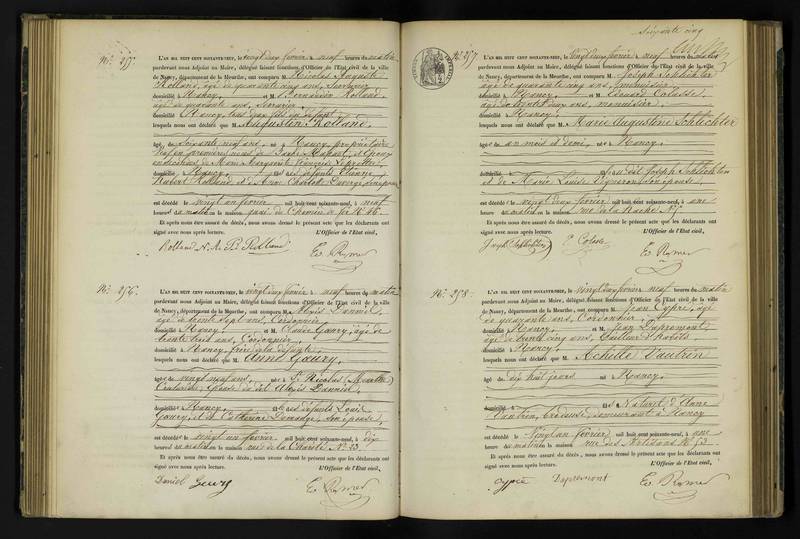 N°. 255.
L'an mil huit cent soixante-neuf, le vingt deux février à neuf heures du matin
pardevant nous Adjoint au Maire, délégué faisant fonctions d'Officier de l'Etat civil de la ville
de Nancy, département de la Meurthe, ont comparu M. Nicolas Auguste
Rolland, âgé de quarante cinq ans, Serrurier
domicilié à Nancy et M. Bernardin Rolland,
âgé de quarante ans, Serrurier
domicilié à Nancy, tous deux fils du défunt
lesquels nous ont déclaré que M. Augustin Rolland,
âgé de soixante neuf ans, né à Nancy, propriétaire
veuf en premières noces de
en Marguerite Françoise
domicilié à Nancy, fils des défunts Etienne
Hubert Rolland et d'Anne Charlotte
est décédé le vingt un février mil huit cent soixante-neuf, à neuf
heures du matin en la maison quai du Chemin de fer N° 16.
Et après nous être assuré du décès, nous avons dressé le présent acte que les déclarants ont
signé avec nous après lecture. L'Officier de l'Etat civil,
Rolland N. A. Rolland
Ev. Rymer
N°. 256.
L'an mil huit cent soixante-neuf, le vingt deux février à neuf heures du matin
pardevant nous Adjoint au Maire, délégué faisant fonctions d'Officier de l'Etat civil de la ville
de Nancy, département de la Meurthe, ont comparu M. Aloyis Danniel,
âgé de trente sept ans, Cordonnier
domicilié à Nancy et M. Claude Gaury, âgé de
trente trois ans, Cordonnier,
domicilié à Nancy, frère de la défunte,
lesquels nous ont déclaré que M. Anne Gaury,
âgée de vingt neuf ans, née à St. Nicolas (Meurthe)
Couturière, épouse du dit Aloyis Danniel,
domiciliée à Nancy, fille des défunts Louis
Gaury, et de Catherine Demange, son épouse,
est décédée le vingt un février mil huit cent soixante-neuf, à dix
heures du matin en la maison rue de la Charité N° 23.
Et après nous être assuré du décès, nous avons dressé le présent acte que les déclarants ont
signé avec nous après lecture. L'Officier de l'Etat civil,
Daniel Gaury
Ev. Rymer
Soixante cinq
N°. 257.
L'an mil huit cent soixante-neuf, le vingt deux février à neuf heures du matin
pardevant nous Adjoint au Maire, délégué faisant fonctions d'Officier de l'Etat civil de la ville
de Nancy, département de la Meurthe, ont comparu M. Joseph Schlichter
âgé de quarante cinq ans, menuisier,
domicilié à Nancy, et M. Edouard
âgé de trente deux ans, menuisier,
domicilié à Nancy,
lesquels nous ont déclaré que M. Marie Augustine Schlichter
âgée de un mois et demi, née à Nancy,
fille du dit Joseph Schlichter
et de Marie Louise Vigneron, son épouse,
est décédée le vingt deux février mil huit cent soixante-neuf, à une
heure du matin en la maison rue de la
Et après nous être assuré du décès, nous avons dressé le présent acte que les déclarants ont
signé avec nous après lecture. L'Officier de l'Etat civil,
Ev. Rymer
N°. 258.
L'an mil huit cent soixante-neuf, le vingt deux février à neuf heures du matin
pardevant nous Adjoint au Maire, délégué faisant fonctions d'Officier de l'Etat civil de la ville
de Nancy, département de la Meurthe, ont comparu M. Jean Cypre, âgé
de quarante ans, Cordonnier,
domicilié à Nancy, et M. Jean Dupremont
âgé de trente cinq ans, tailleur d'habits,
domicilié à Nancy,
lesquels nous ont déclaré que M. Achille Vautrin
âgé de dix huit jours né à Nancy,
fils Naturel d'Anne
Vautrin, brodeuse demeurant à Nancy
est décédé le vingt un février mil huit cent soixante-neuf, à une
heure du matin en la maison rue des Artisans N° 53.
Et après nous être assuré du décès, nous avons dressé le présent acte que les déclarants ont
signé avec nous après lecture. L'Officier de l'Etat civil,
Cyprè Dupremont
Ev. Rymer